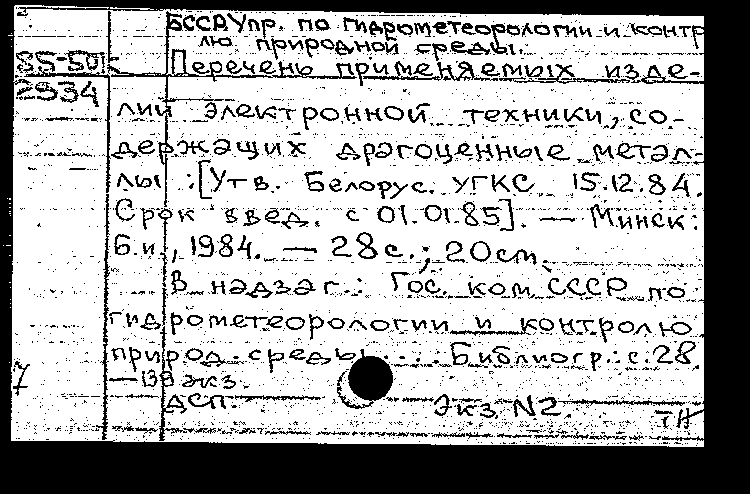 БССР Упр. по гидрометеорологии и контр
лю природной среды.
Перечень применяемых изде-
2934
лий электронной техники, со-
держащих драгоценные метал-
лы : [Утв. Белорус. УГКС 15.12.84.
Срок введ. с 01.01.85]. — Минск:
Б.и., 1984. — 28 с.; 20 cm.
В надзаг.: Гос. ком СССР по
гидрометеорологии и контролю
природ. среды .... Библиогр.: с. 28
— 139 экз.
ДСП. Экз N2.